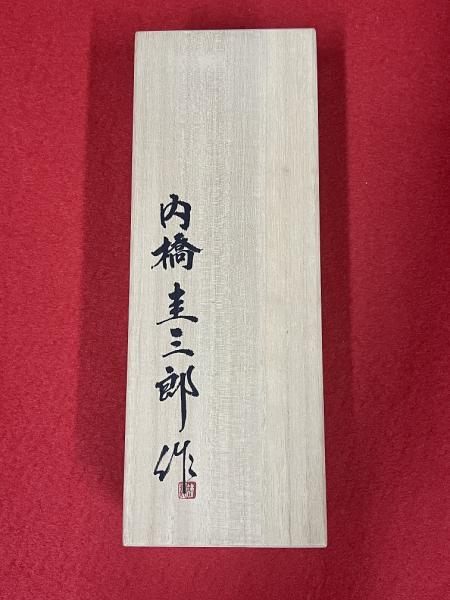 内橋圭三郎作